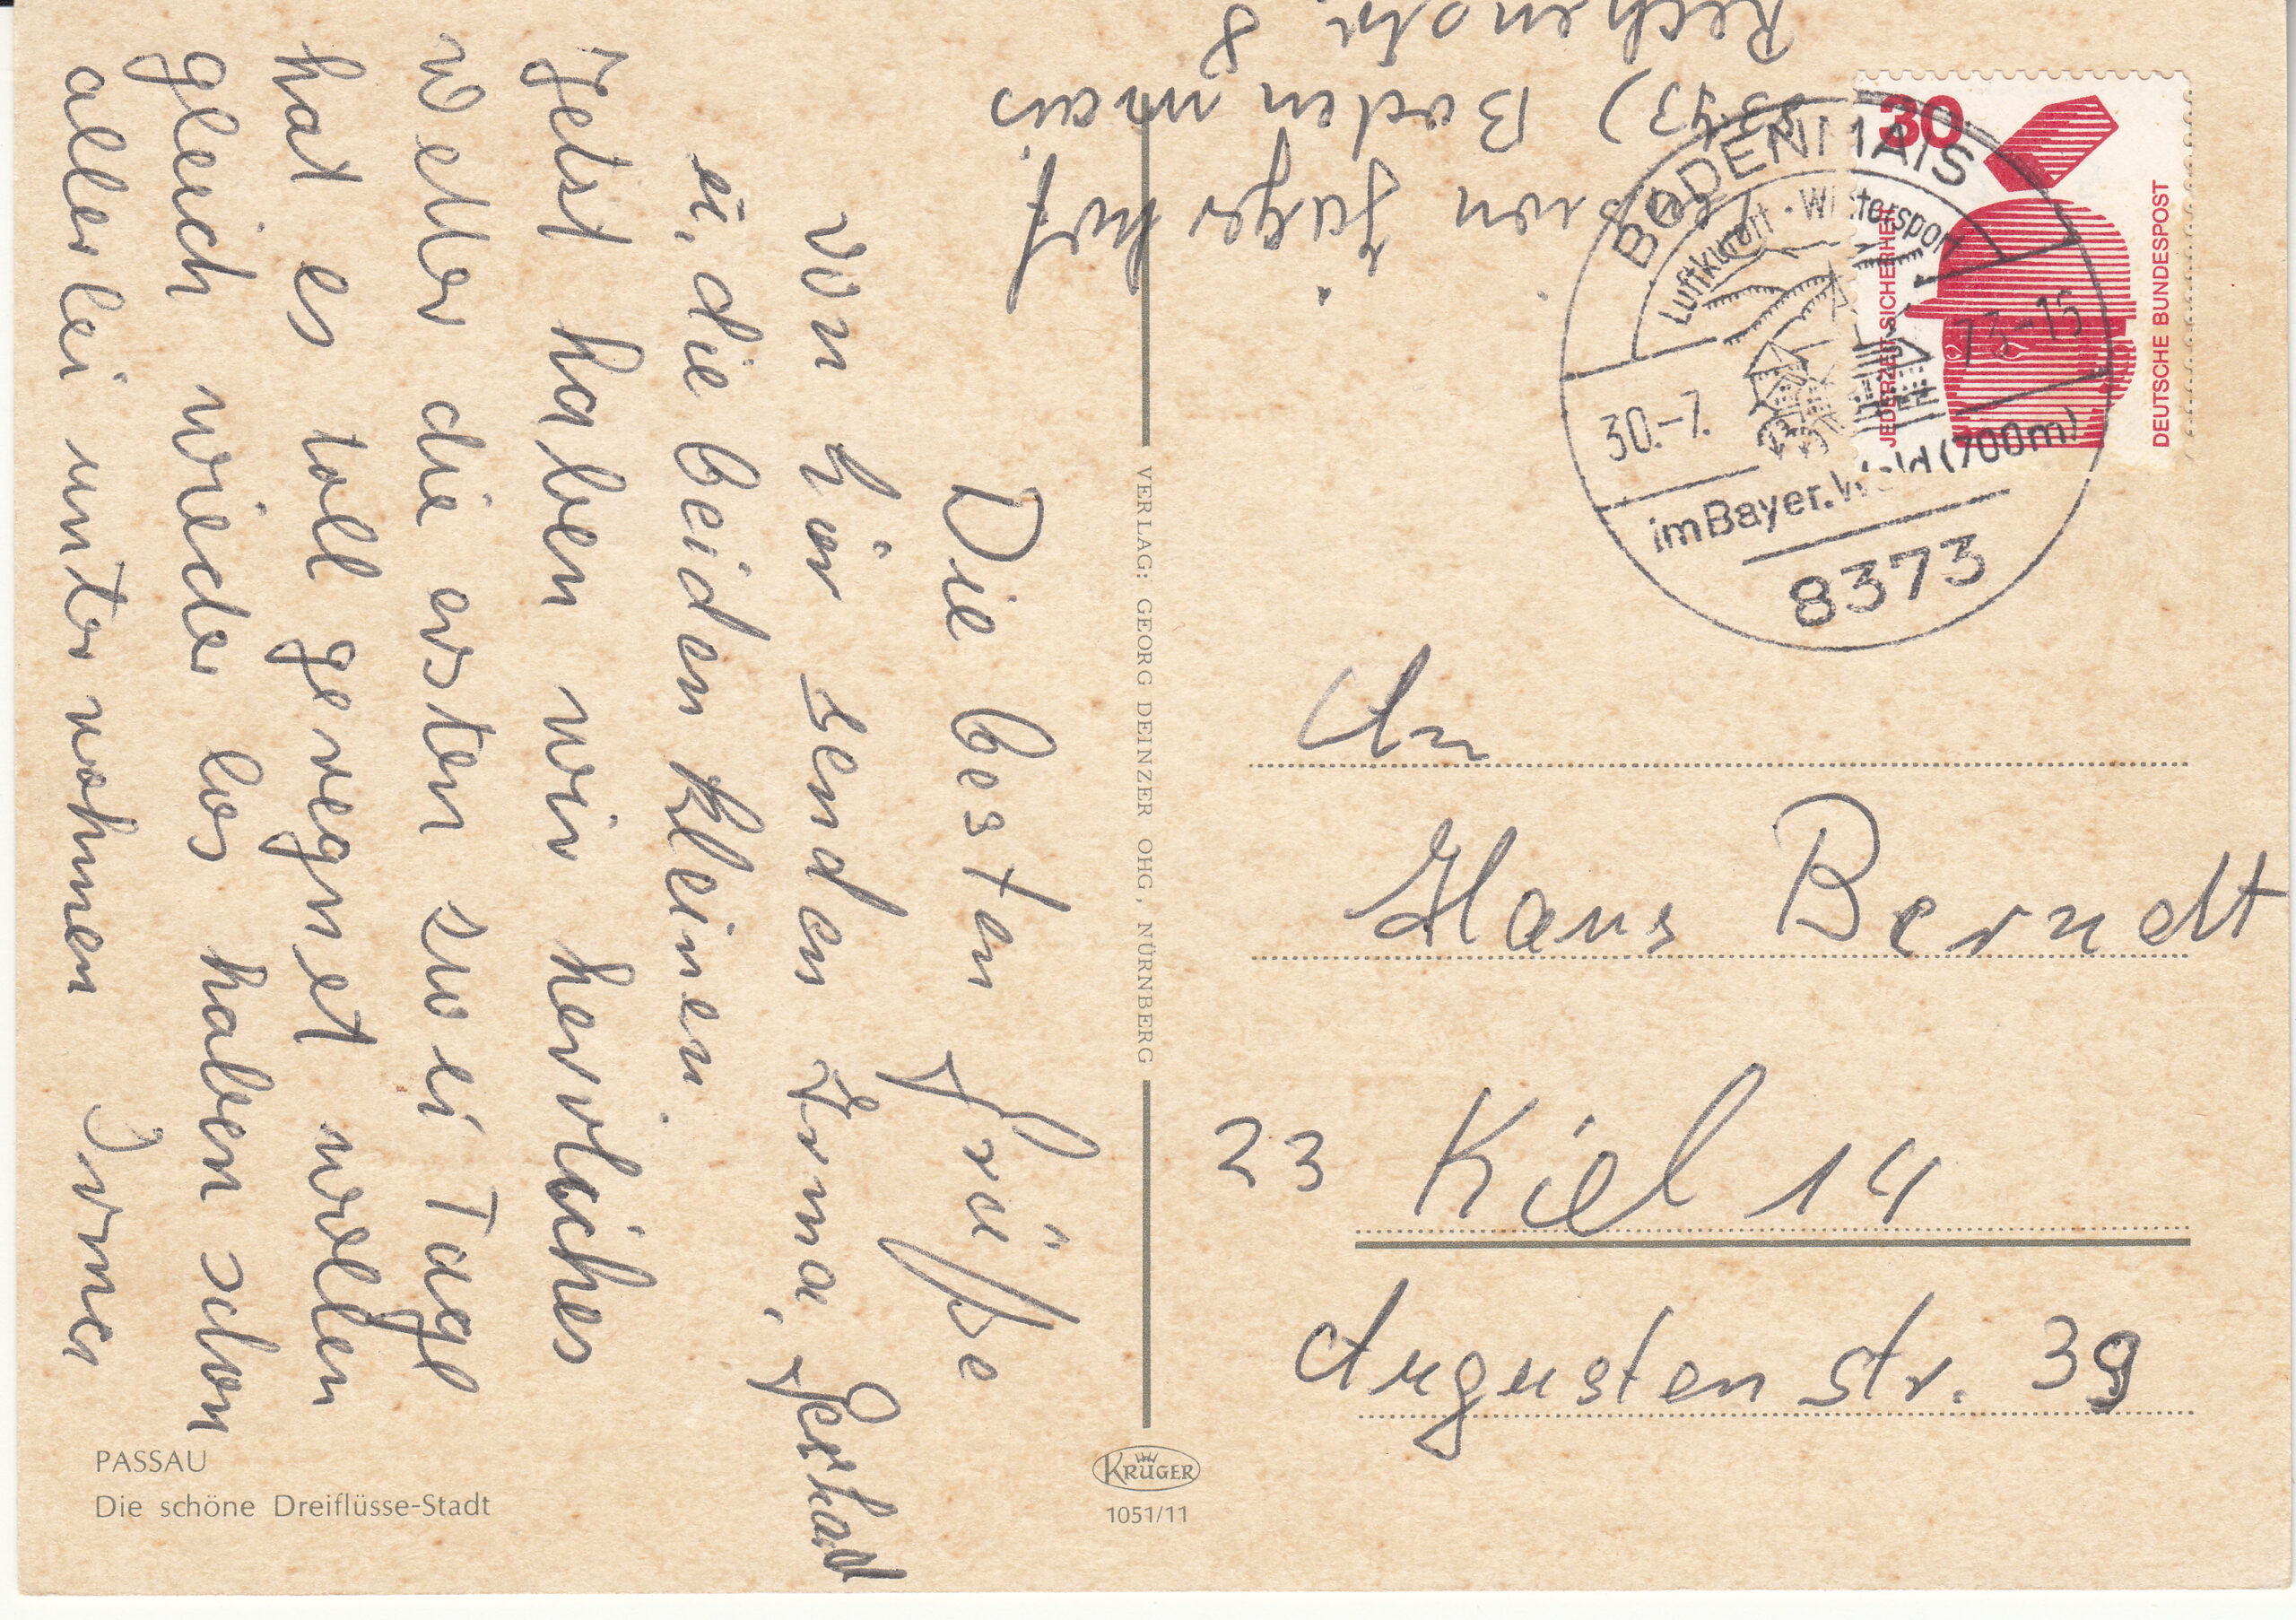 Die besten Grüße
von hir senden Irma, Gerhard
u, die beiden Kleinen
Jetst haben wir herrliches
weter die ersten swei Tage
hat es toll geregnet wollen
gleich wieder los haben schon
allerlei unternohmen Irma
Jägerhof
Bodenmais
Rechenstr. 8
30
JEDERZEIT SICHERHEIT
DEUTSCHE BUNDESPOST
BODENMAIS
Luftkurort · Wintersport
30.-7. 73-15
im Bayer. Wald (700m)
8373
An
Hans Berndt
23 Kiel 14
Augustenstr. 39
VERLAG: GEORG DEINZER OHG, NÜRNBERG
PASSAU
Die schöne Dreiflüsse-Stadt
KRÜGER
1051/11